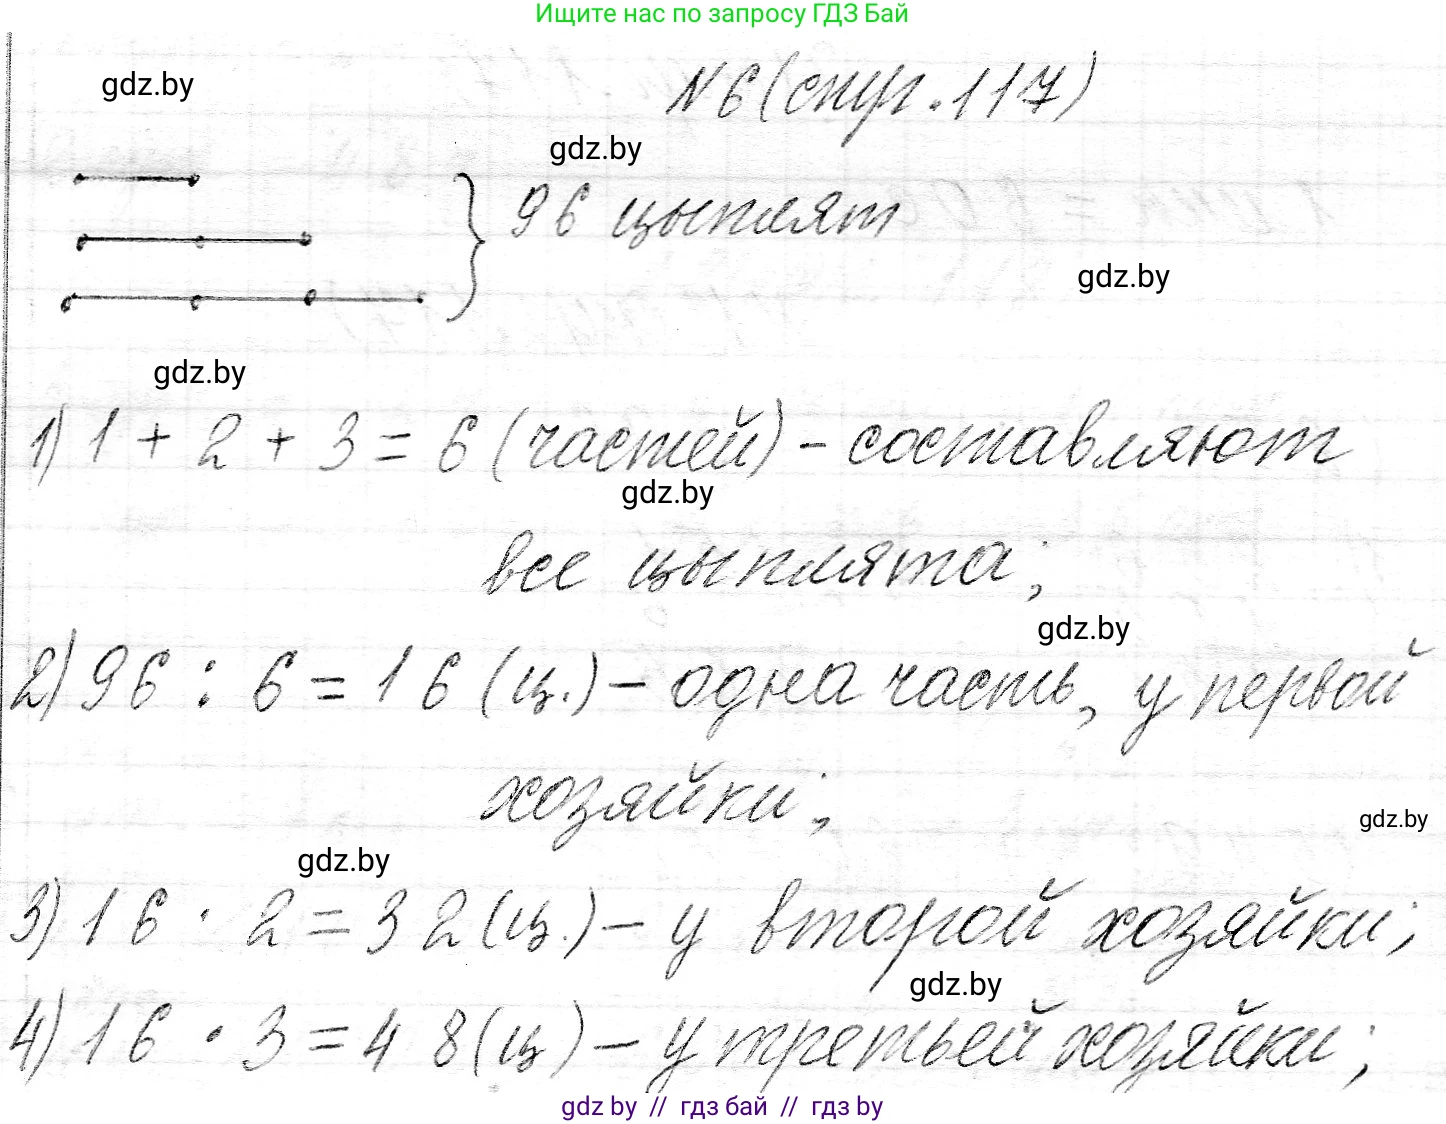 Ищите нас по запросу ГДЗ Бай
gdz.by
N 6 (стр. 117)
gdz.by
96 цыплят
gdz.by
gdz.by
1) 1 + 2 + 3 = 6 (частей) - составляют
gdz.by
все цыплята;
gdz.by
2) 96 : 6 = 16 (ц.) - одна часть, у первой
хозяйки;
gdz.by
gdz.by
3) 16 · 2 = 32 (ц.) - у второй хозяйки;
gdz.by
4) 16 · 3 = 48 (ц) - у третьей хозяйки;
gdz by // гдз бай // гдз by